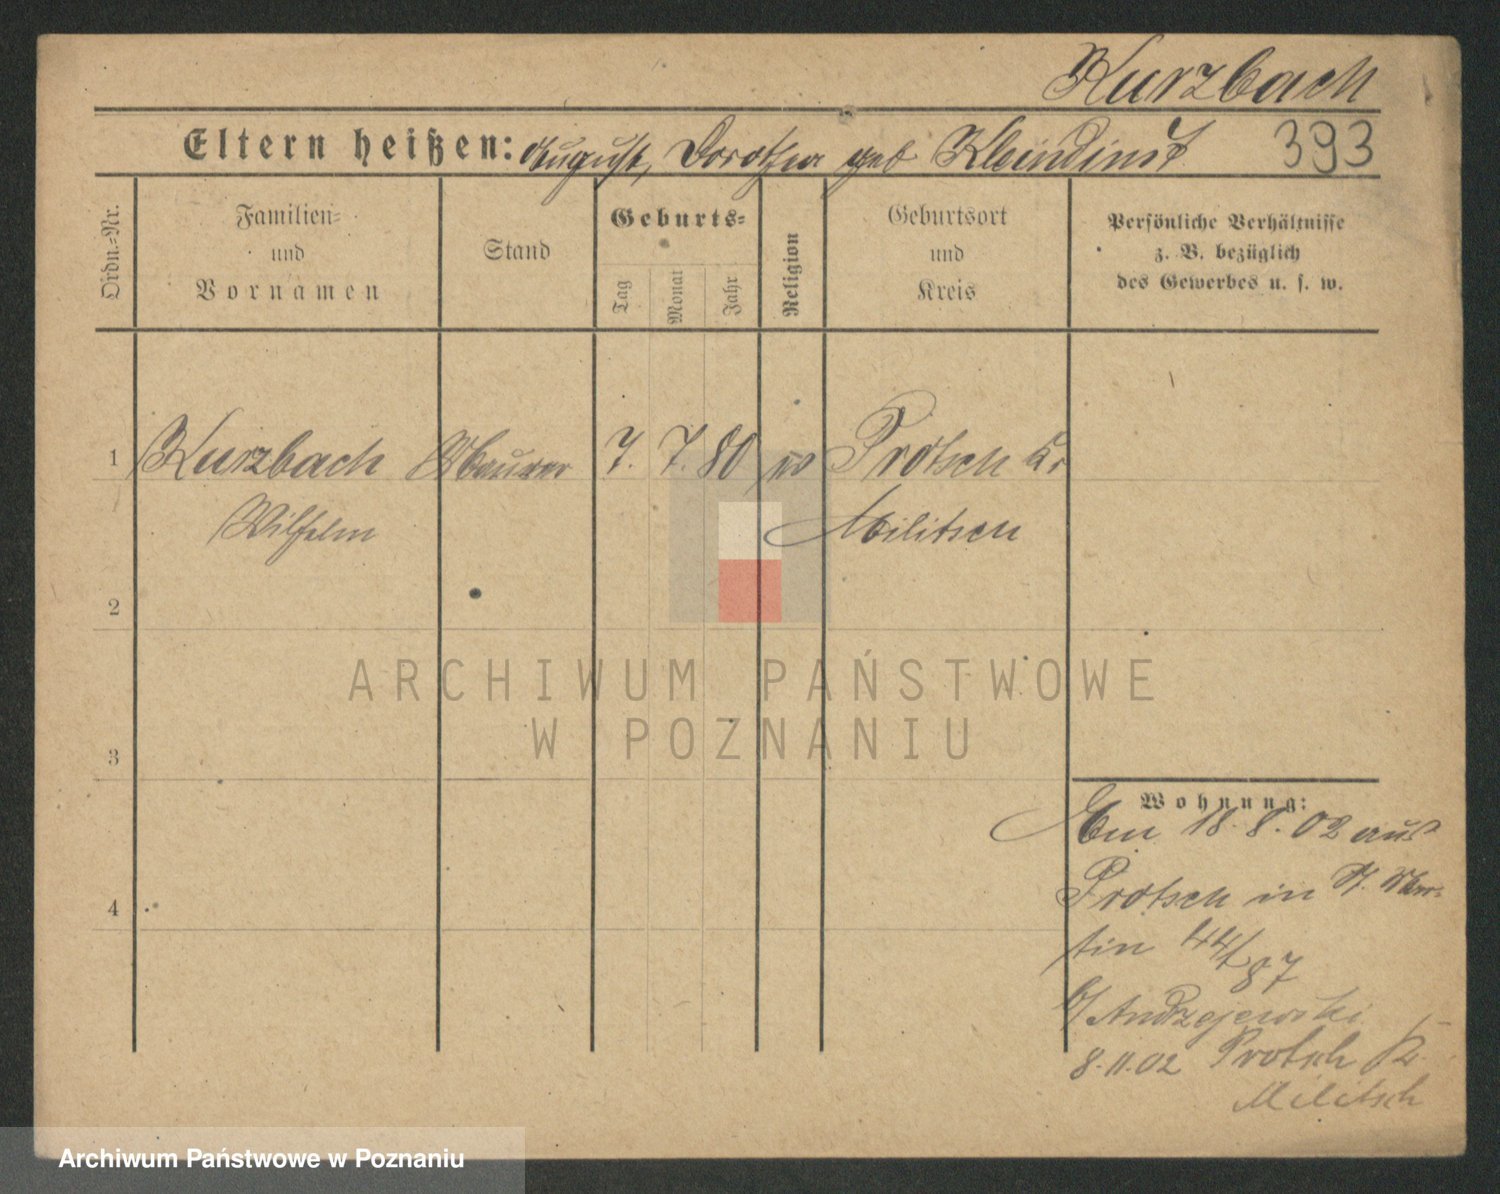 Kurzbach
Eltern heißen: August, Dorothea geb 393
Ordn.-Nr.
Familien-
und
Vornamen
Stand
Geburts-
Tag
Monat
Jahr
Religion
Geburtsort
und
Kreis
Persönliche Verhältnisse
z. B. bezüglich
des Gewerbes u. s. w.
1 Kurzbach Maurer 7. 7. 80 Protsch Kr
Wilhelm Militsch
2
3
4
Wohnung:
Em 18. 8. 02 aus
Protsch in St. Mar-
tin 44/
87
b/ Andrzejewski
8.11.02 Protsch Kr.
Militsch
ARCHIWUM PAŃSTWOWE
W POZNANIU
Archiwum Państwowe w Poznaniu